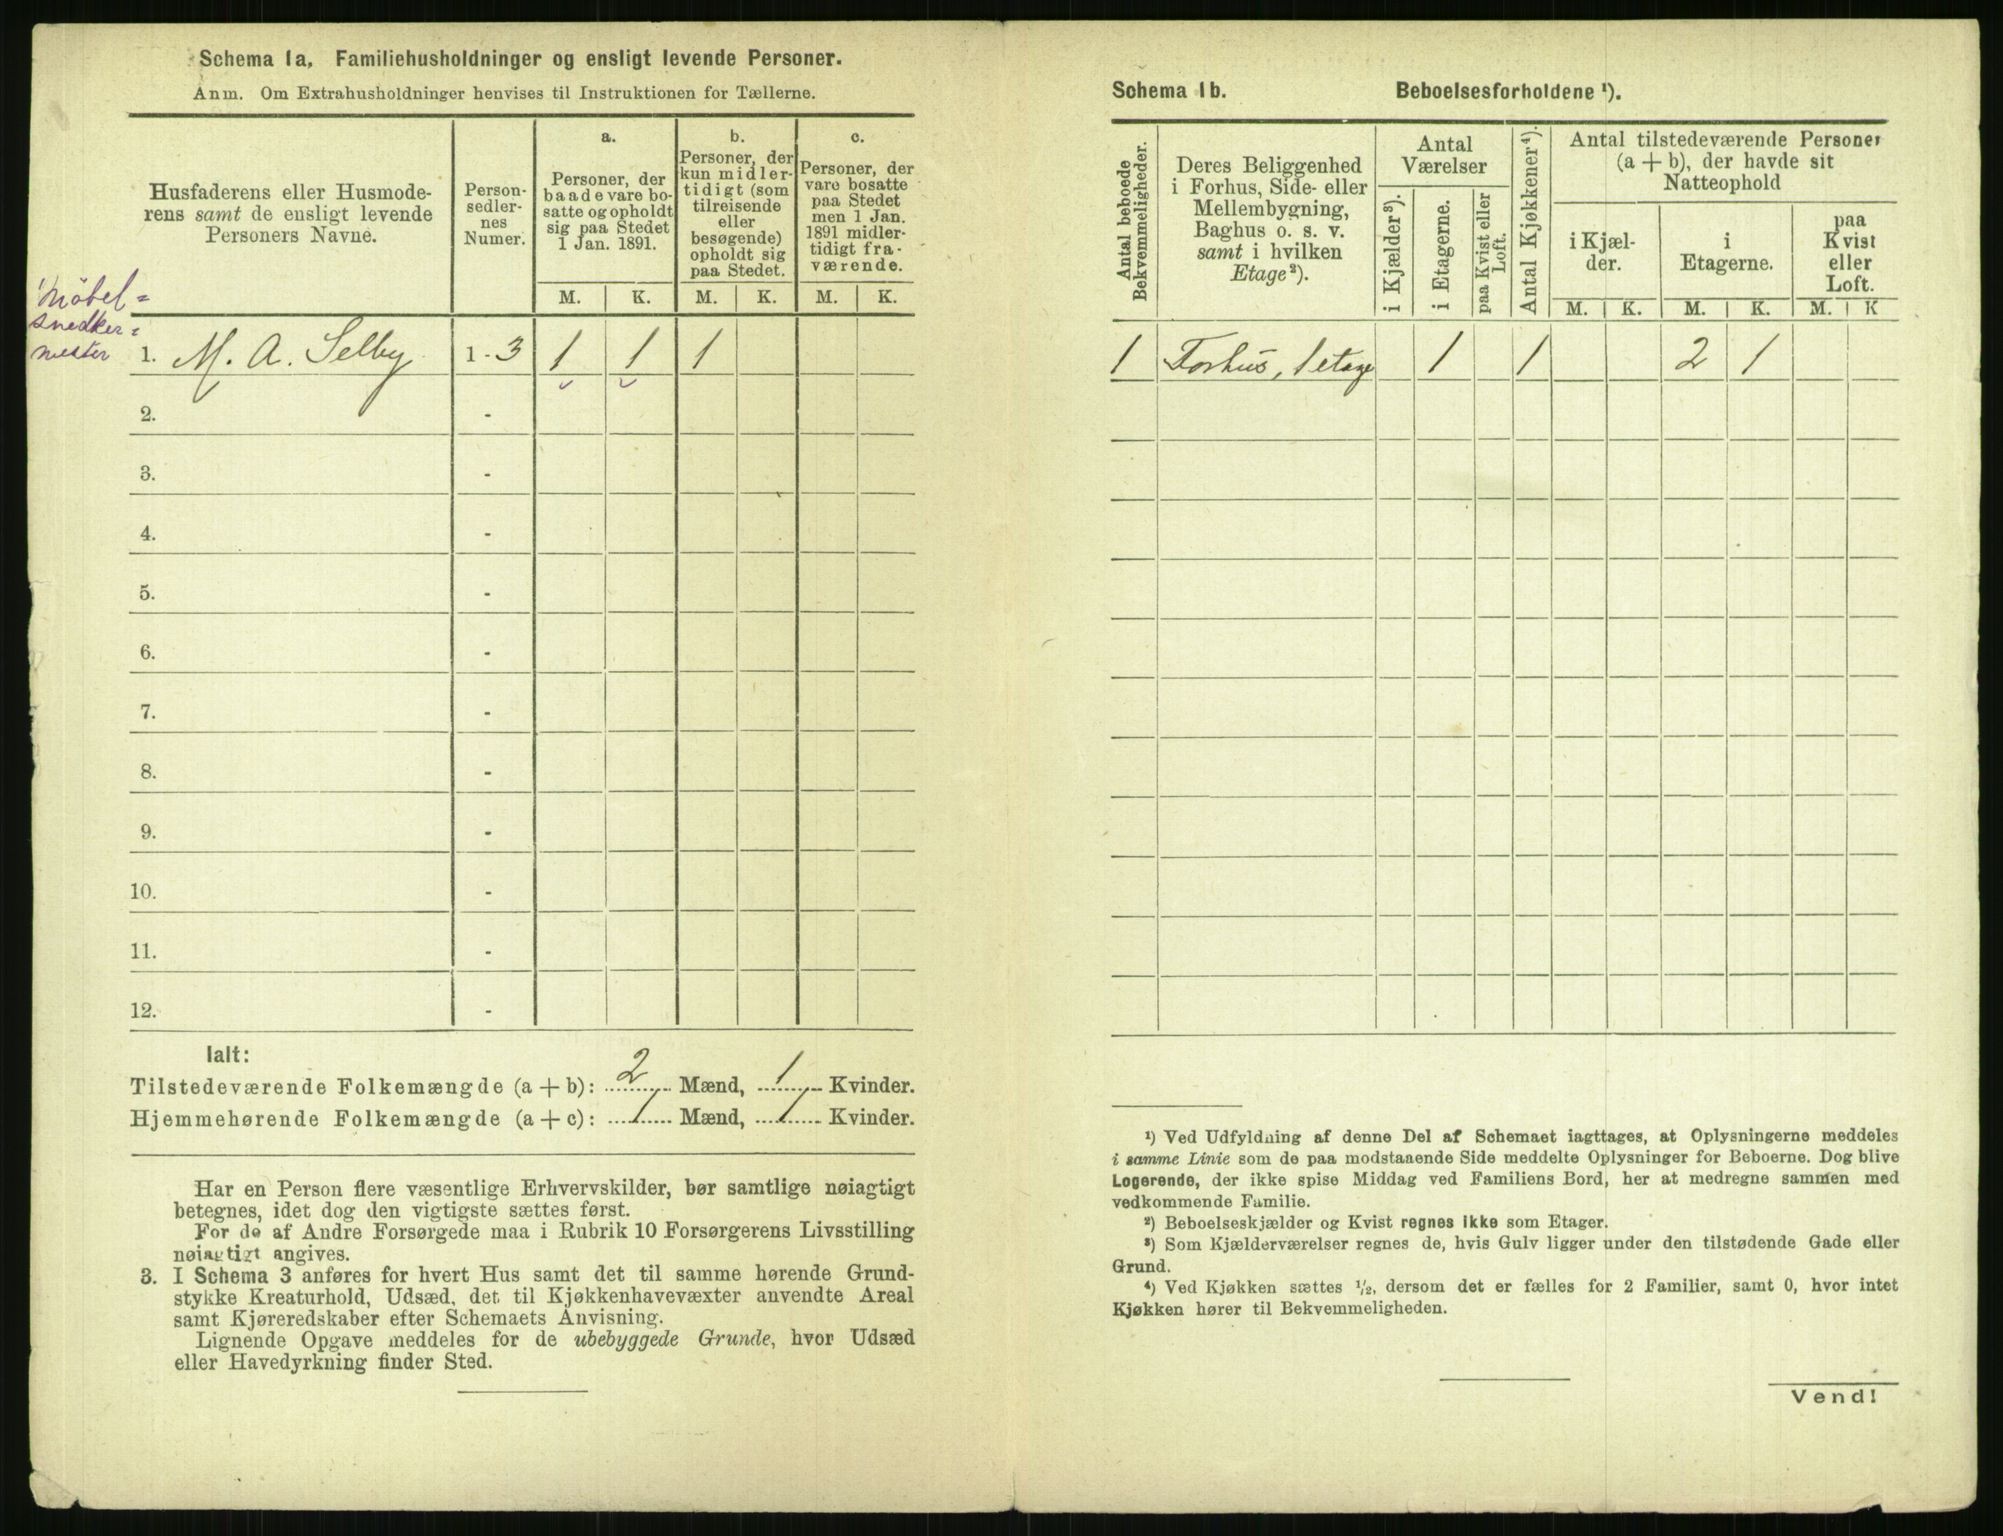 Schema 1a. Familiehusholdninger og ensligt levende Personer.
Anm. Om Extrahusholdninger henvises til Instruktionen for Tællerne.
Husfaderens eller Husmode-
rens samt de ensligt levende
Personers Navne.
Person-
sedler-
nes
Numer.
a.
Personer, der
baade vare bo-
satte og opholdt
sig paa Stedet
1 Jan. 1891.
b.
Personer, der
kun midler-
tidigt (som
tilreisende
eller
besøgende)
opholdt sig
paa Stedet.
c.
Personer, der
vare bosatte
paa Stedet
men 1 Jan.
1891 midler-
tidigt fra-
værende.
M. K. M. K. M. K.
Möbel=
snedker=
mester
1. M. A. Selby 1-3 1 1 1
2. -
3. -
4. -
5. -
6. -
7. -
8. -
9. -
10. -
11. -
12. -
Ialt:
Tilstedeværende Folkemængde (a + b): 2 Mænd, 1 Kvinder.
Hjemmehørende Folkemængde (a + c): 1 Mænd, 1 Kvinder.
Har en Person flere væsentlige Erhvervskilder, bør samtlige nøiagtigt
betegnes, idet dog den vigtigste sættes først.
For de af Andre Forsørgede maa i Rubrik 10 Forsørgerens Livsstilling
nøiagtigt angives.
3. I Schema 3 anføres for hvert Hus samt det til samme hørende Grund-
stykke Kreaturhold, Udsæd, det til Kjøkkenhavevæxter anvendte Areal
samt Kjøreredskaber efter Schemaets Anvisning.
Lignende Opgave meddeles for de ubebyggede Grunde, hvor Udsæd
eller Havedyrkning finder Sted.
Schema 1b. Beboelsesforholdene ¹).
Antal beboede
Bekvemmeligheder.
Deres Beliggenhed
i Forhus, Side- eller
Mellembygning,
Baghus o. s. v.
samt i hvilken
Etage ²).
Antal
Værelser
i Kjælder ³).
i Etagerne.
paa Kvist eller
Loft.
Antal Kjøkkener ⁴).
Antal tilstedeværende Personer
(a + b), der havde sit
Natteophold
i Kjæl-
der.
i
Etagerne.
paa
Kvist
eller
Loft.
M. K. M. K. M. K
1 Forhus, 1 etage 1 1 2 1
¹) Ved Udfyldning af denne Del af Schemaet iagttages, at Oplysningerne meddeles
i samme Linie som de paa modstaaende Side meddelte Oplysninger for Beboerne. Dog blive
Logerende, der ikke spise Middag ved Familiens Bord, her at medregne sammen med
vedkommende Familie.
²) Beboelseskjælder og Kvist regnes ikke som Etager.
³) Som Kjælderværelser regnes de, hvis Gulv ligger under den tilstødende Gade eller
Grund.
⁴) Ved Kjøkken sættes ½, dersom det er fælles for 2 Familier, samt 0, hvor intet
Kjøkken hører til Bekvemmeligheden.
Vend!